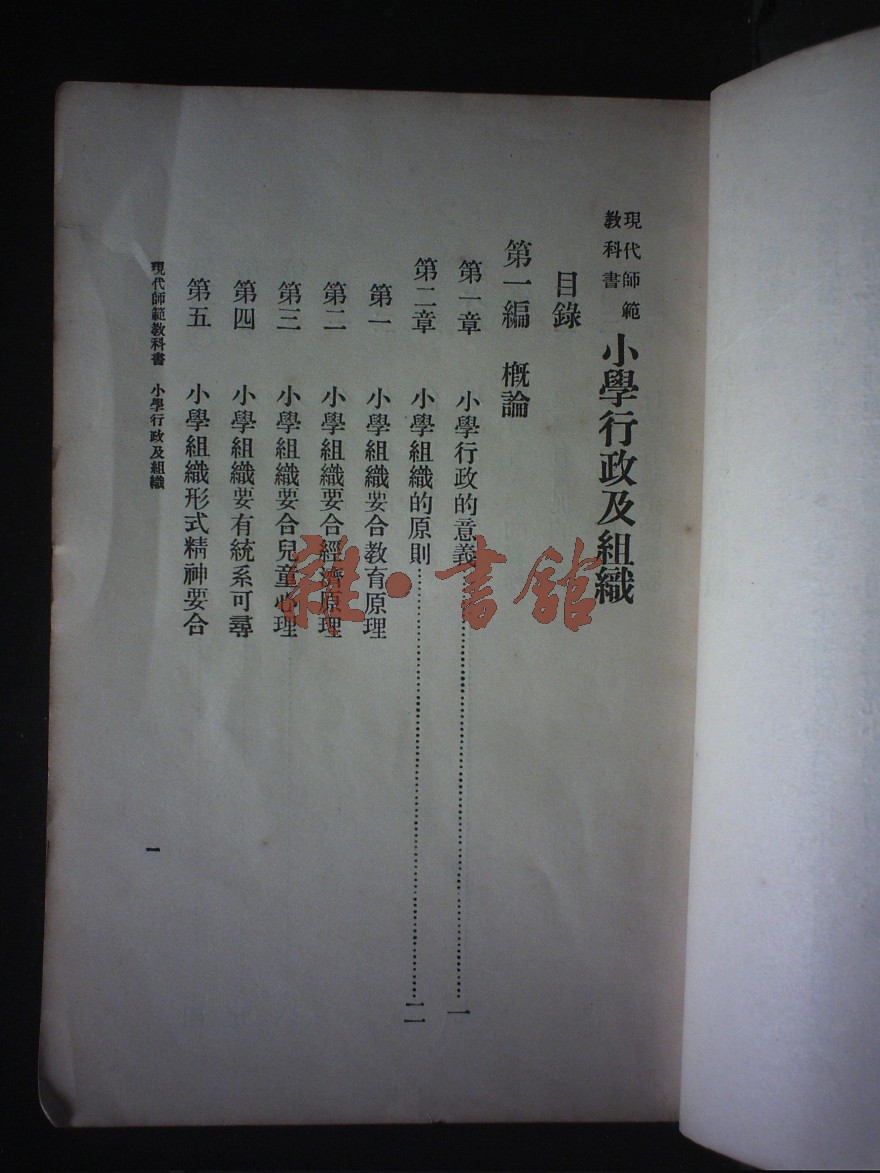 現代師範
教科書
小學行政及組織
目錄
第一編 概論
第一章 小學行政的意義……一
第二章 小學組織的原則……二
第一 小學組織要合教育原理
第二 小學組織要合經濟原理
第三 小學組織要合兒童心理
第四 小學組織要有統系可尋
第五 小學組織形式精神要合
現代師範教科書 小學行政及組織
一
雜·書館